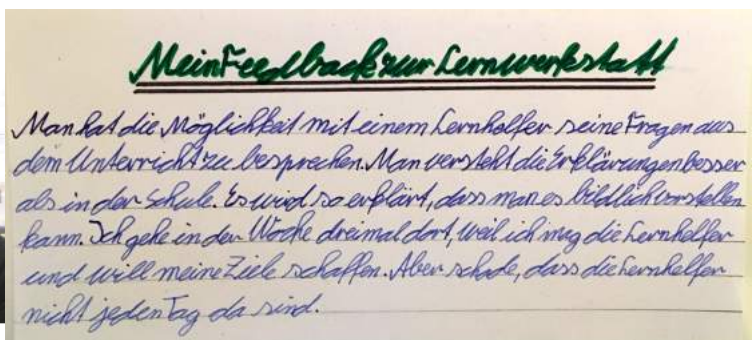 Mein Feedback zur Lernwerkstatt
Man hat die Möglichkeit mit einem Lernhelfer seine Fragen aus
dem Unterricht zu besprechen. Man versteht die Erklärungen besser
als in der Schule. Es wird so erklärt, dass man es bildlich vorstellen
kann. Ich gehe in der Woche dreimal dort, weil ich mag die Lernhelfer
und will meine Ziele schaffen. Aber schade, dass die Lernhelfer
nicht jeden Tag da sind.